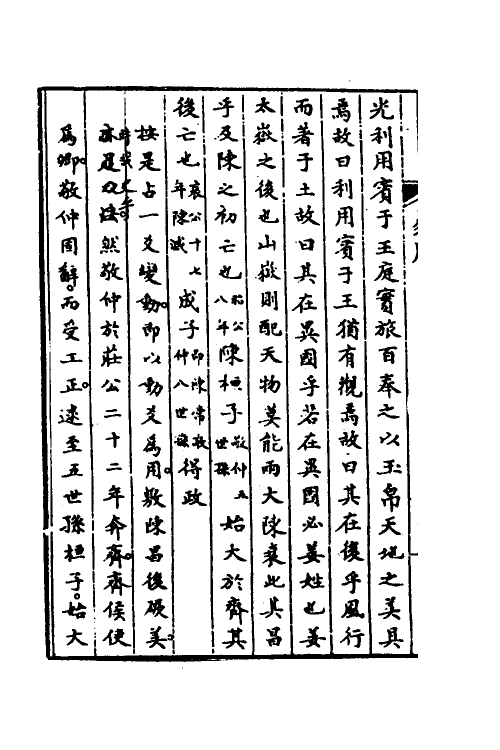 光利用賓于王庭實旅百奉之以玉帛天地之美具
焉故曰利用賓于王猶有觀焉故曰其在後乎風行
而著于土故曰其在異國乎若在異國必姜姓也姜
太嶽之後也山嶽則配天物莫能兩大陳衰此其昌
乎及陳之初亡也昭公八年陳桓子敬仲五世孫始大於齊其
後亡也哀公十七年陳滅成子即陳常敬仲八世孫得政
按是占一爻變動即以動爻為用敷陳昌後碩美
然敬仲於莊公二十二年奔齊齊侯使
為卿敬仲固辭而受工正逮至五世孫桓子始大